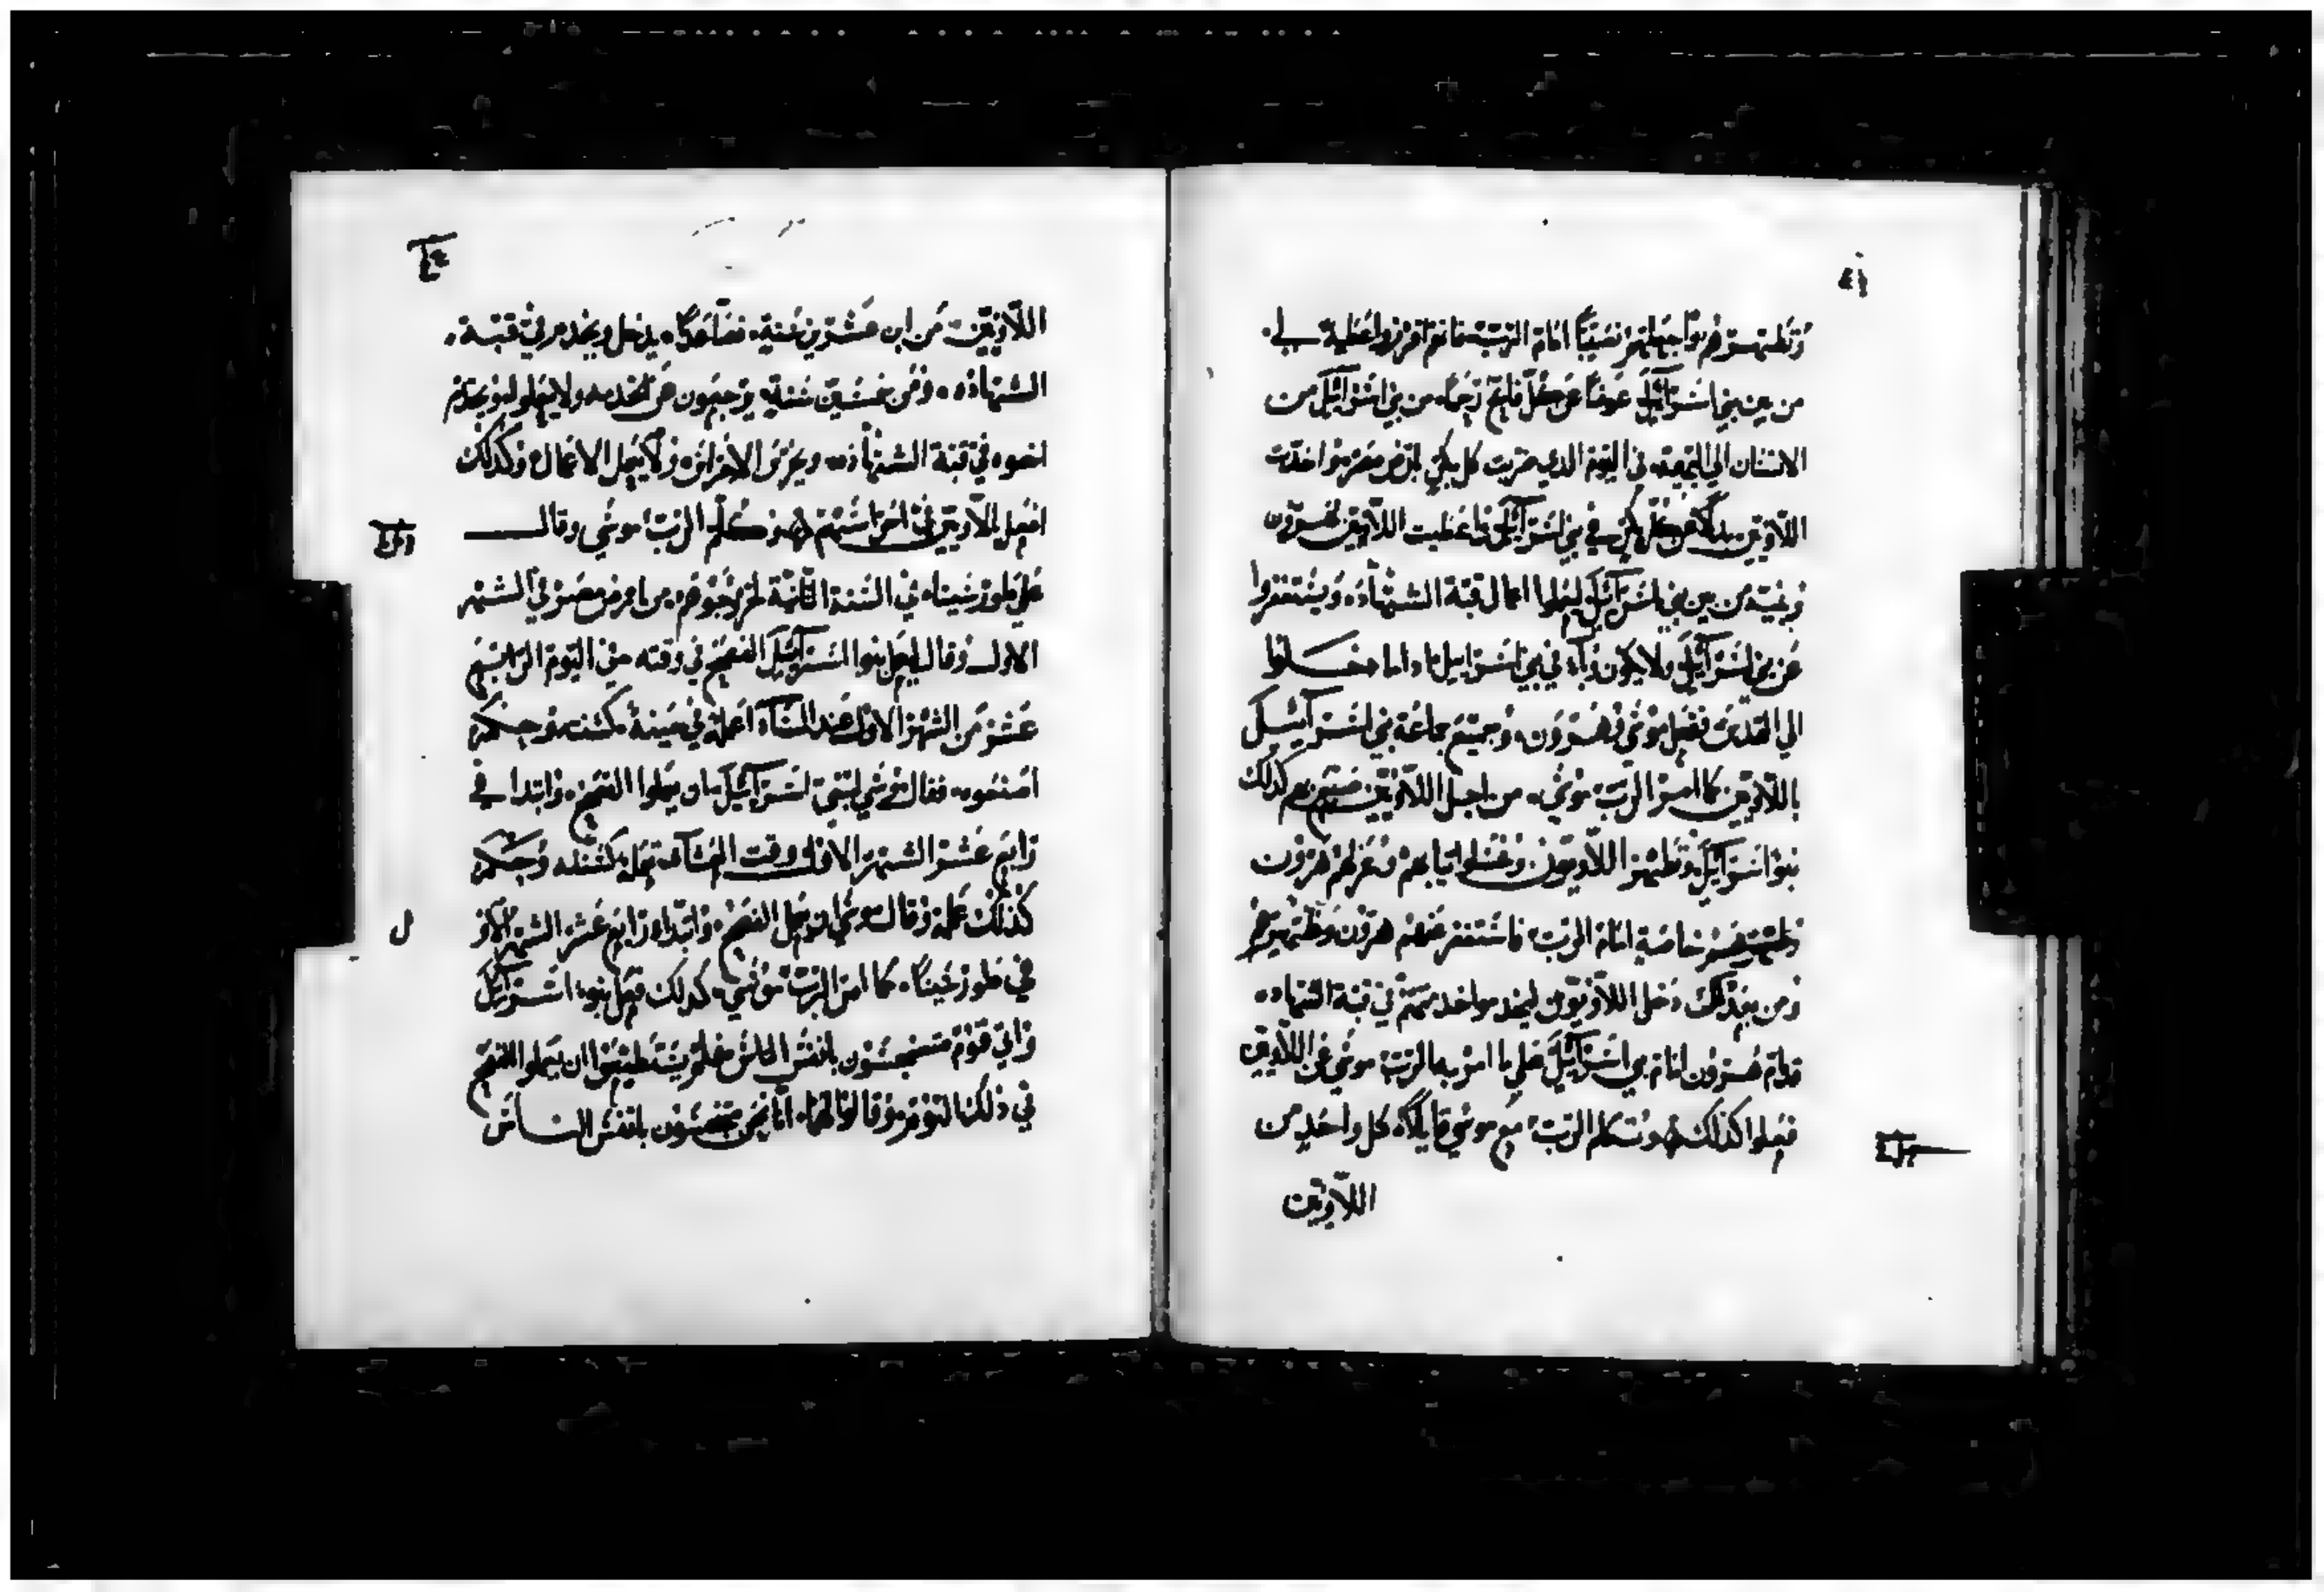 وتطهرهم وتجعلهم نصيبًا امام الرب فانهم افرزوا عطية لي
من بين بني اسرائيل عوضًا عن كل فاتح رحمًا من بني اسرائيل من
الانسان الي البهيمة في اليوم الذي ضربت كل بكر بارض مصر واخذت
اللاويين بدلًا عن كل بكر في بني اسرائيل واعطيت اللاويين لهرون
وبنيه من بين بني اسرائيل ليعملوا اعمال قبة الشهادة ويستغفروا
عن بني اسرائيل ولا يكون وبآء في بني اسراييل اذا ما دخلوا
الي القدس ففعل موسي وهرون وجميع جماعة بني اسرائيل
باللاويين كما امر الرب موسي من اجل اللاويين صنع بهم كذلك
بنو اسرائيل وتطهر اللاويون وغسلوا ثيابهم وعزلهم هرون
خاصة امام الرب فاستغفر عنهم هرون وطهرهم
ومن بعد ذلك دخل اللاويون ليخدموا خدمتهم في قبة الشهاده
قدام هرون امام بني اسرائيل علي ما امر به الرب موسي عن اللاويين
فعلوا كذلك وتكلم الرب مع موسي قايلًا كل واحد من
اللاويين
اللاويين من ابن عشرين سنة فصاعدًا يدخل ويخدم في قبة
الشهاده ومن خمسين سنة يرجعون عن الخدمه ولا يعملوا ليخدم
اخوه في قبة الشهاده ويحرس الاحراس ولا يعمل الاعمال وكذلك
افعل اللاويين في احراسهم وكلم الرب موسي وقال
علي طور سينا في السنة الثانية لخروجهم من ارض مصر في الشهر
الاول وقال ليعمل بنوا اسرائيل الفصح في وقته من اليوم الرابع
عشر من الشهر الاول عند المساء اعمله في حينه كسنته وحكمه
اصنعوه فقال موسي لبني اسرائيل ان يعملوا الفصح وابتدا في
رابع عشر الشهر الاول وقت المساء كسنته وحكمه
كذلك عمله وقال موسي ان يعمل الفصح وابتداء رابع عشر الشهر الاو
ل
في طور سينا كما امر الرب موسي كذلك فعل بنوا اسرائيل
واتي قوم متنجسون بانفس الناس فلم يستطيعوا ان يعملوا الفصح
في ذلك اليوم وقالوا لهما انا نحن متنجسون بانفس الناس